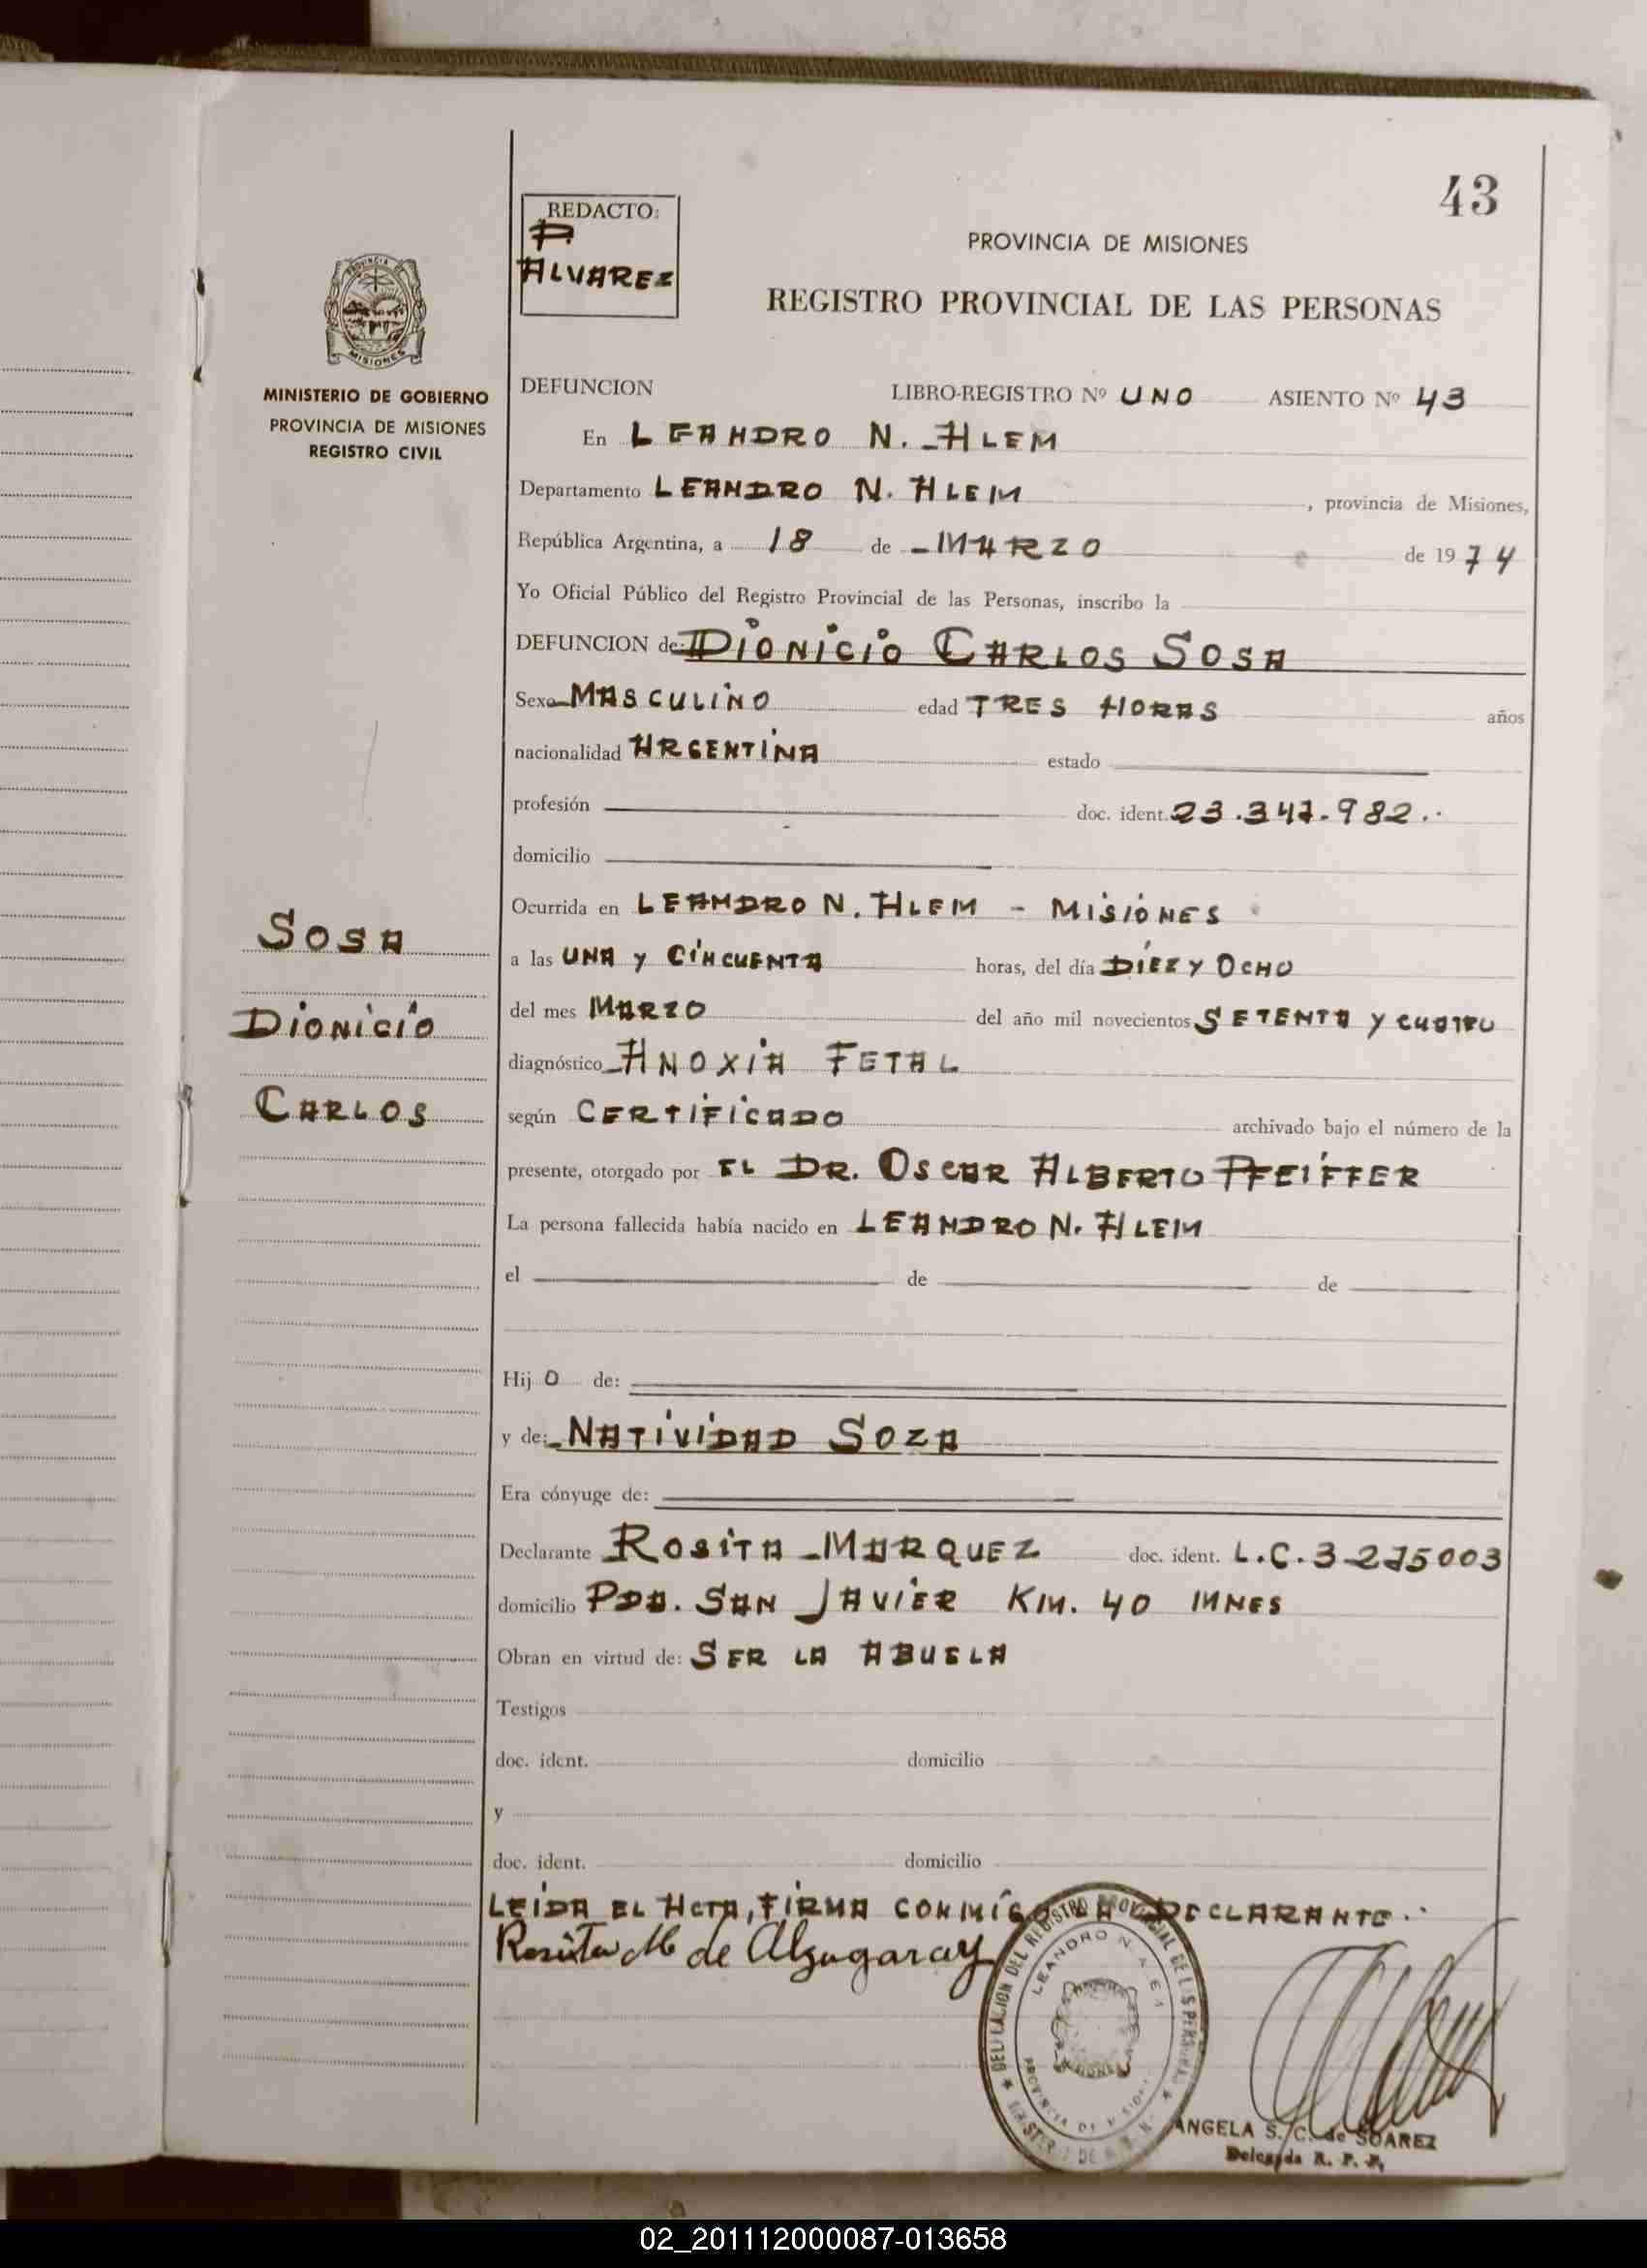 43
REDACTO:
A
ALVAREZ
PROVINCIA DE MISIONES
REGISTRO PROVINCIAL DE LAS PERSONAS
PROVINCIA DE
MISIONES
MINISTERIO DE GOBIERNO
PROVINCIA DE MISIONES
REGISTRO CIVIL
DEFUNCION LIBRO-REGISTRO Nº UNO ASIENTO Nº 43
En LEANDRO N. ALEM
Departamento LEANDRO N. ALEM, provincia de Misiones,
República Argentina, a 18 de MARZO de 1974
Yo Oficial Público del Registro Provincial de las Personas, inscribo la
DEFUNCION de: DIONICIO CARLOS SOSA
Sexo MASCULINO edad TRES HORAS años
nacionalidad ARGENTINA estado
profesión doc. ident. 23.347.982..
domicilio
Ocurrida en LEANDRO N. ALEM - MISIONES
SOSA
a las UNA y CINCUENTA horas, del día DIEZ Y OCHO
DIONICIO
del mes MARZO del año mil novecientos SETENTA y CUATRO
diagnóstico ANOXIA FETAL
CARLOS
según CERTIFICADO archivado bajo el número de la
presente, otorgado por EL DR. OSCAR ALBERTO PFEIFFER
La persona fallecida había nacido en LEANDRO N. ALEM
el de de
Hij O de:
y de: NATIVIDAD SOZA
Era cónyuge de:
Declarante ROSITA MARQUEZ doc. ident. L.C. 3-275003
domicilio PDA. SAN JAVIER KM. 40 MNES
Obran en virtud de: SER LA ABUELA
Testigos
doc. ident. domicilio
y
doc. ident. domicilio
LEIDA EL ACTA, FIRMA CONMIGO LA DECLARANTE..
Rosita M de Alzugaray
DELEGACION DEL REGISTRO PROVINCIAL DE LAS PERSONAS
LEANDRO N. ALEM
PROVINCIA DE MISIONES
ANGELA S. C. de SOAREZ
Delegada R. P. P.
02_201112000087-013658